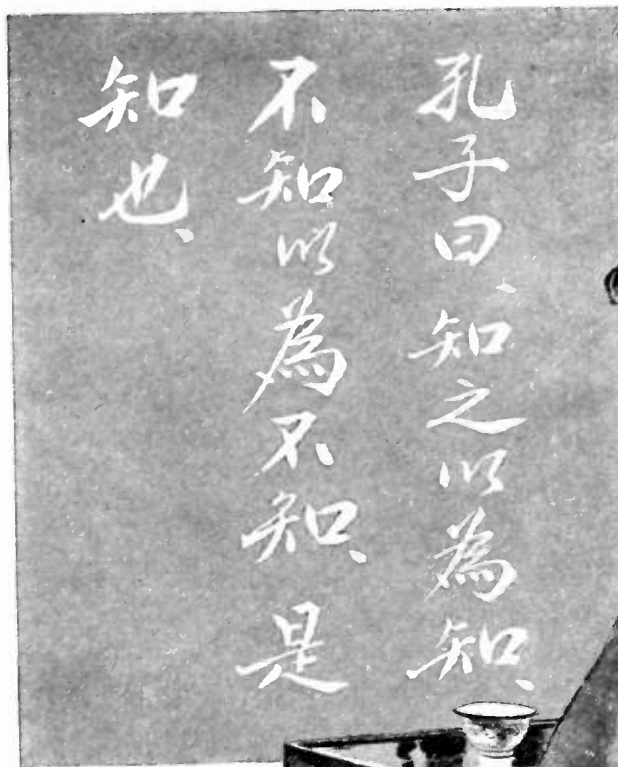 孔子曰、知之以為知、
不知以為不知、是
知也、